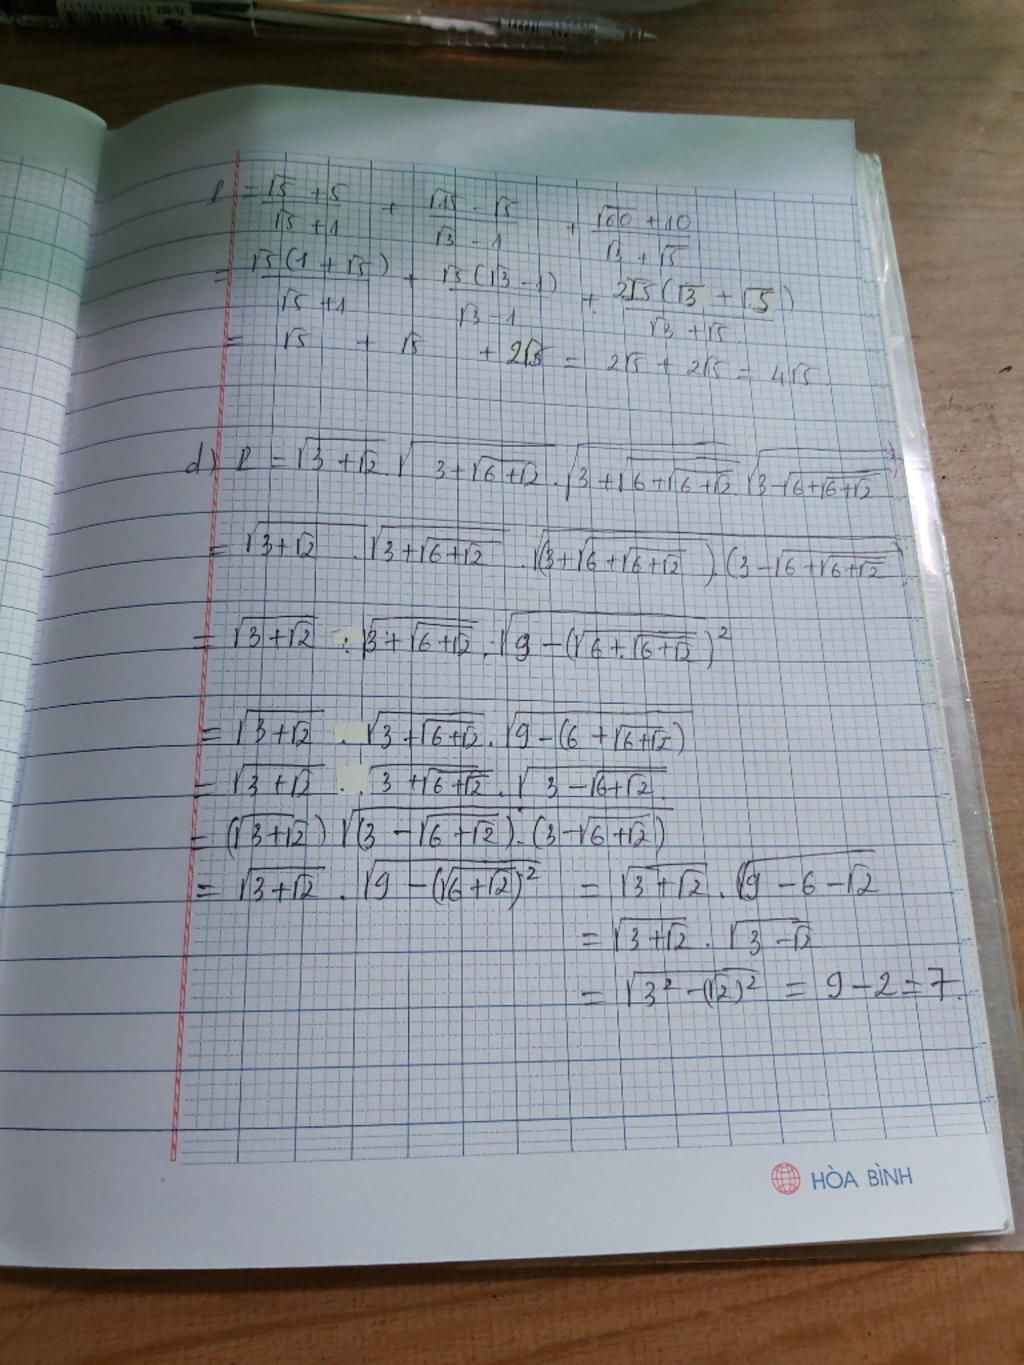 P = (√5 + 5)/(√5 + 1) + (√15 - √5)/(√3 - 1) + (√60 + 10)/(√3 + √5)
= √5(1 + √5)/(√5 + 1) + √5(√3 - 1)/(√3 - 1) + 2√5(√3 + √5)/(√3 + √5)
= √5 + √5 + 2√5 = 2√5 + 2√5 = 4√5.
d) P = √(3 + √2) . √(3 + √(6 + √2)) . √(3 + √(6 + √(6 + √2))) . √(3 - √(6 + √(6 + √2)))
= √(3 + √2) . √(3 + √(6 + √2)) . √((3 + √(6 + √(6 + √2))) . (3 - √(6 + √(6 + √2))))
= √(3 + √2) . √(3 + √(6 + √2)) . √(9 - (√(6 + √(6 + √2)))²)
= √(3 + √2) . √(3 + √(6 + √2)) . √(9 - (6 + √(6 + √2)))
= √(3 + √2) . √(3 + √(6 + √2)) . √(3 - √(6 + √2))
= (√(3 + √2)) √((3 - √(6 + √2)) . (3 - √(6 + √2)))
= √(3 + √2) . √(9 - (√(6 + √2))²) = √(3 + √2) . √(9 - 6 - √2)
= √(3 + √2) . √(3 - √2)
= √(3² - (√2)²) = 9 - 2 = 7.
HÒA BÌNH